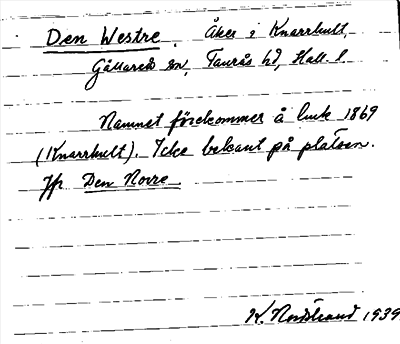 Den Westre. Åker i Knarrhult,
Gällareds sn, Faurås hd, Hall. l.
Namnet förekommer å lmk 1869
(Knarrhult). Icke bekant på platsen.
Jfr Den Norre.
K. Nordstrand 1939